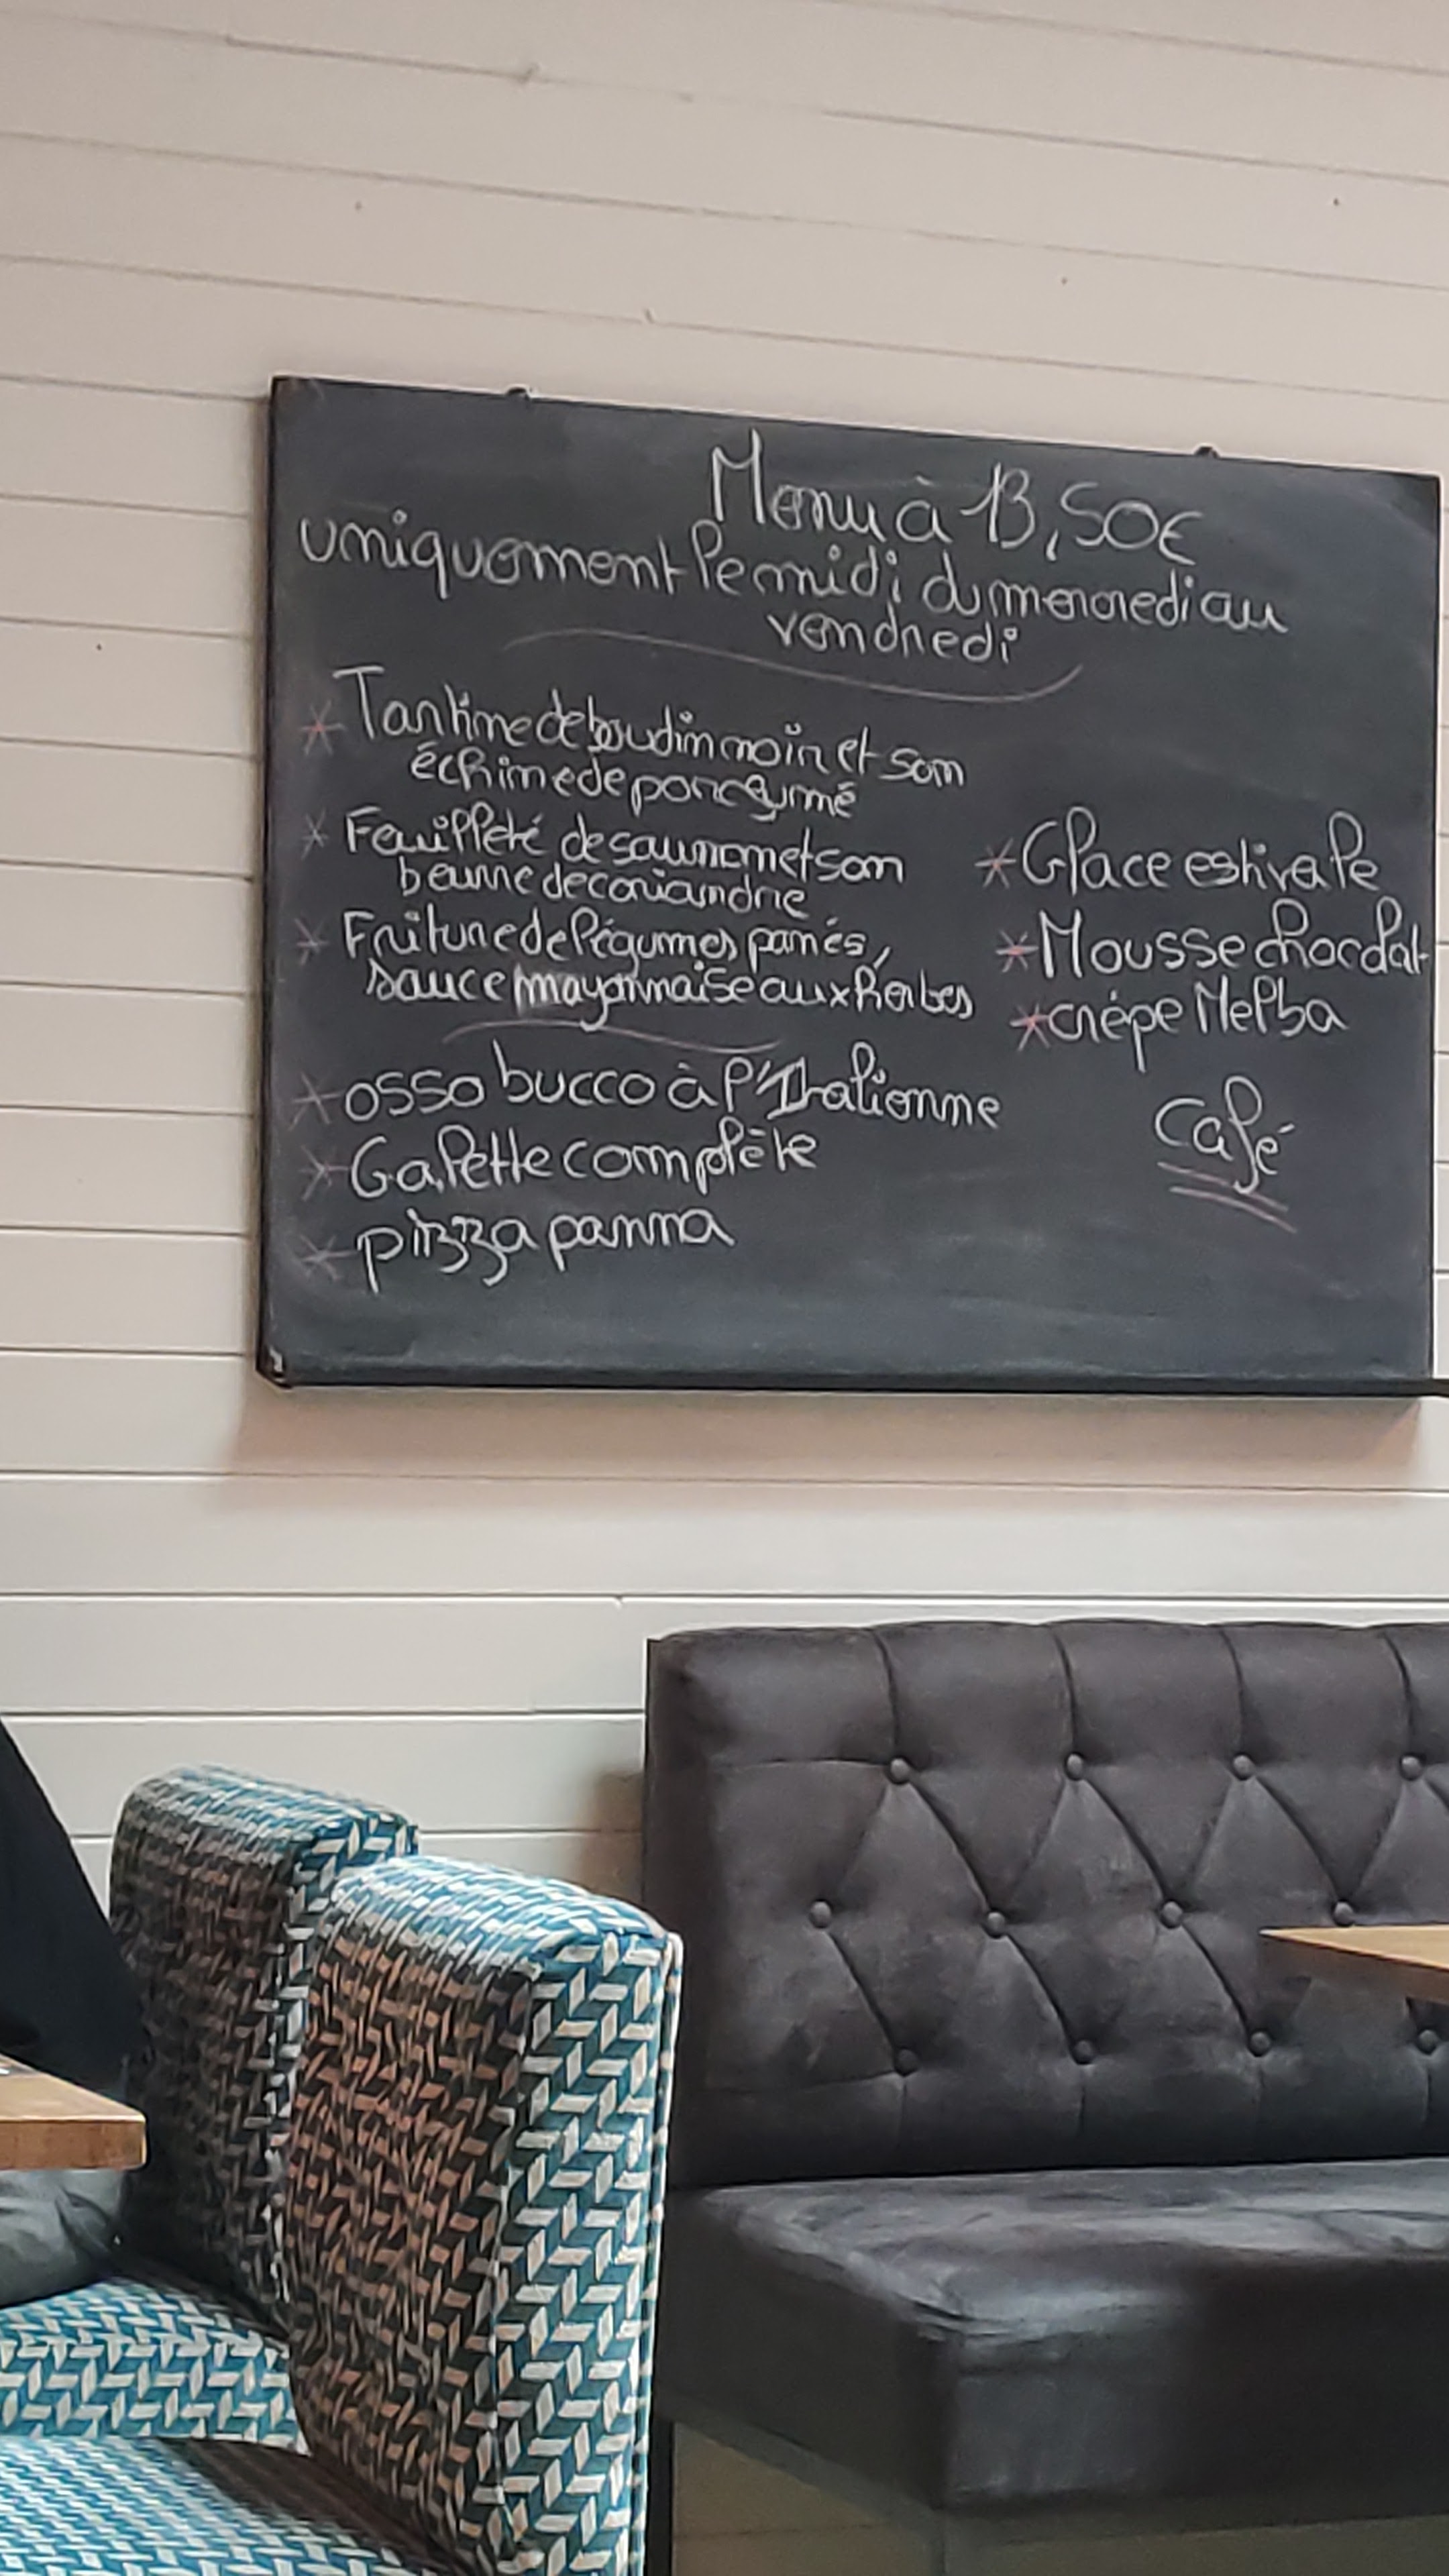 Menu à 13,50€
uniquement le midi du mercredi au
vendredi
* Tartine de boudin noir et son
échine de porc fumé
* Feuilleté de saumon et son
beurre de coriandre
* Friture de légumes panés,
sauce mayonnaise aux herbes
* osso bucco à l'Italienne
* Galette complète
* pizza parma
* Glace estivale
* Mousse chocolat
* crêpe Melba
Café